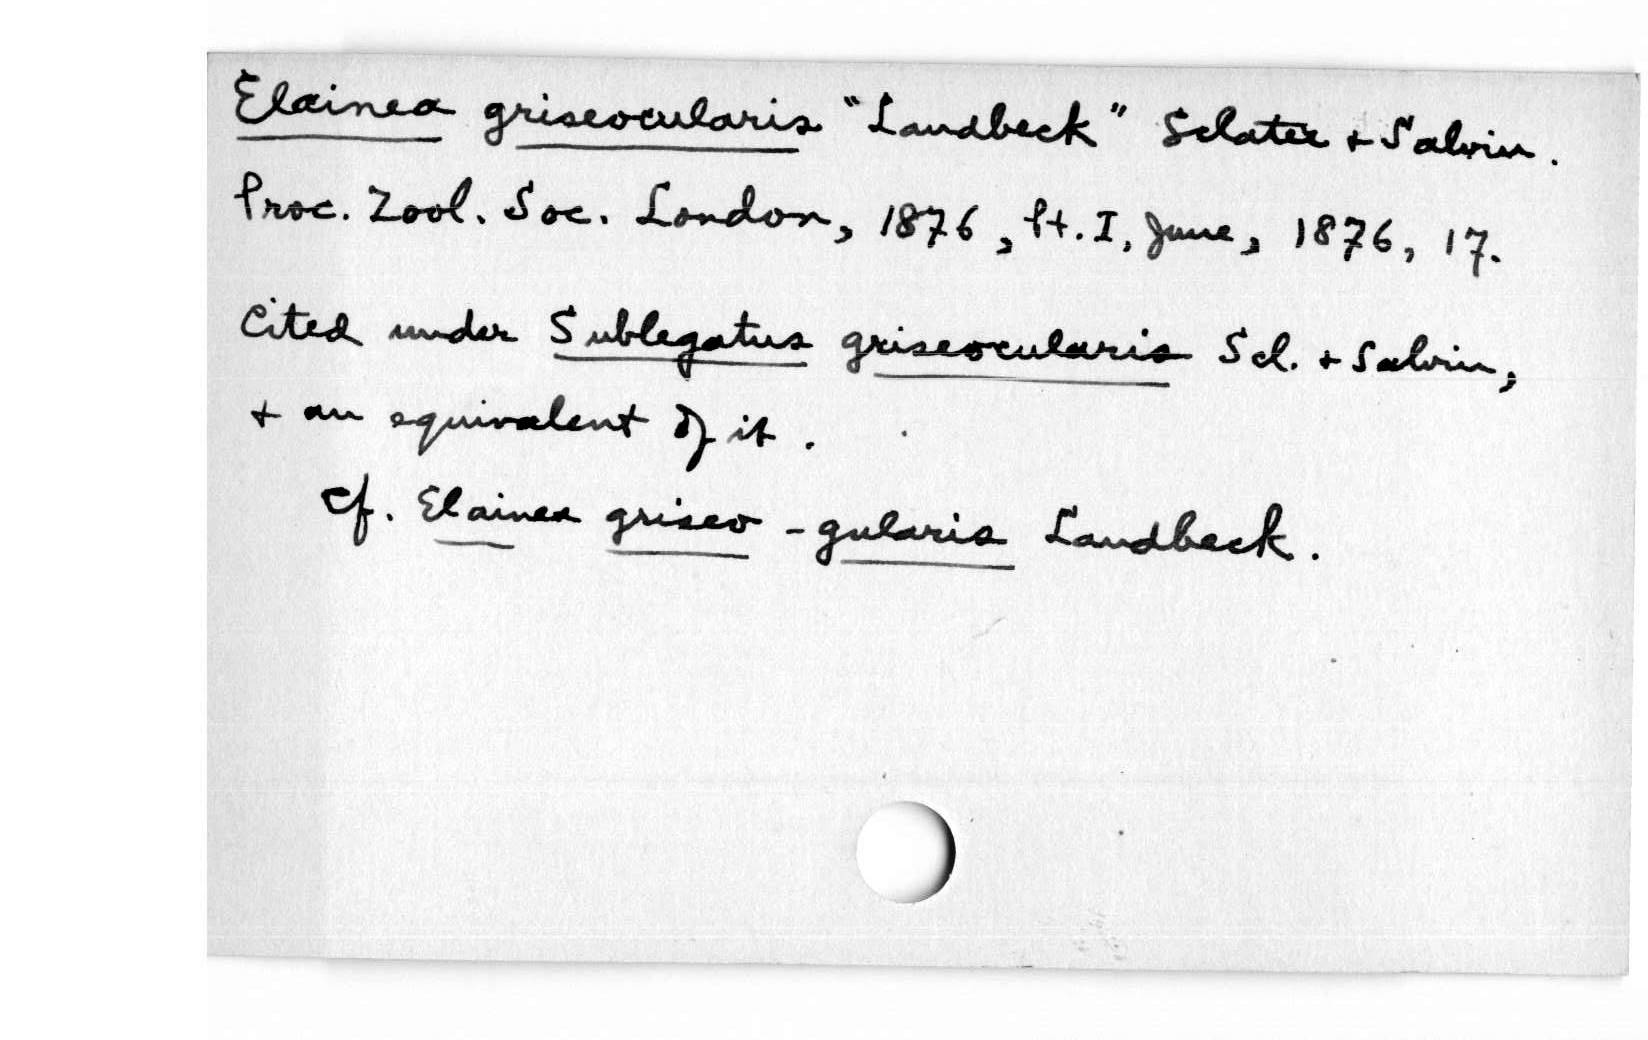 Elainea griseocularis "Landbeck" Sclater + Salvin.
Proc. Zool. Soc. London, 1876, Pt. I, June, 1876, 17.
Cited under Sublegatus griseocularis Scl. + Salvin,
+ an equivalent of it.
Cf. Elainea griseo-gularis Landbeck.